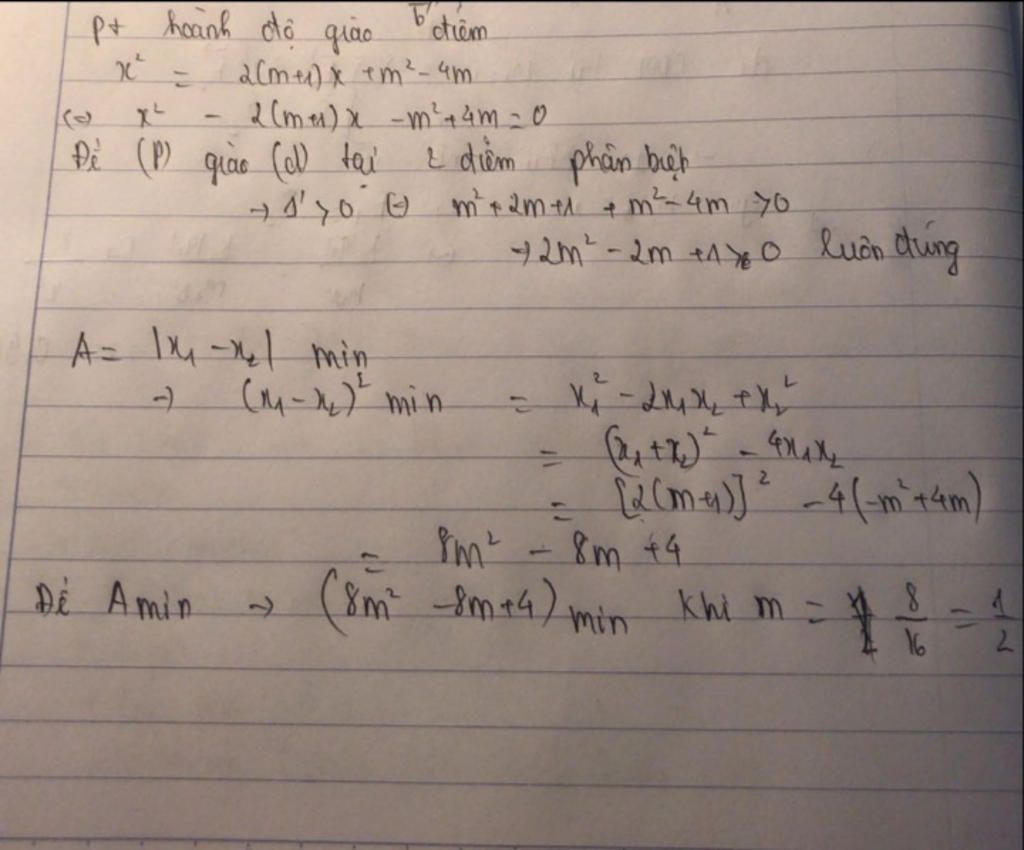 pt hoành độ giao điểm
x² = 2(m+1)x + m² - 4m
(=) x² - 2(m+1)x - m² + 4m = 0
Để (P) giao (d) tại 2 điểm phân biệt
→ Δ' > 0 (=) m² + 2m + 1 + m² - 4m > 0
→ 2m² - 2m + 1 > 0 luôn đúng
A = |x₁ - x₂| min
→ (x₁ - x₂)² min = x₁² - 2x₁x₂ + x₂²
= (x₁ + x₂)² - 4x₁x₂
= [2(m+1)]² - 4(-m² + 4m)
= 8m² - 8m + 4
Để A min → (8m² - 8m + 4) min khi m = 8/16 = 1/2